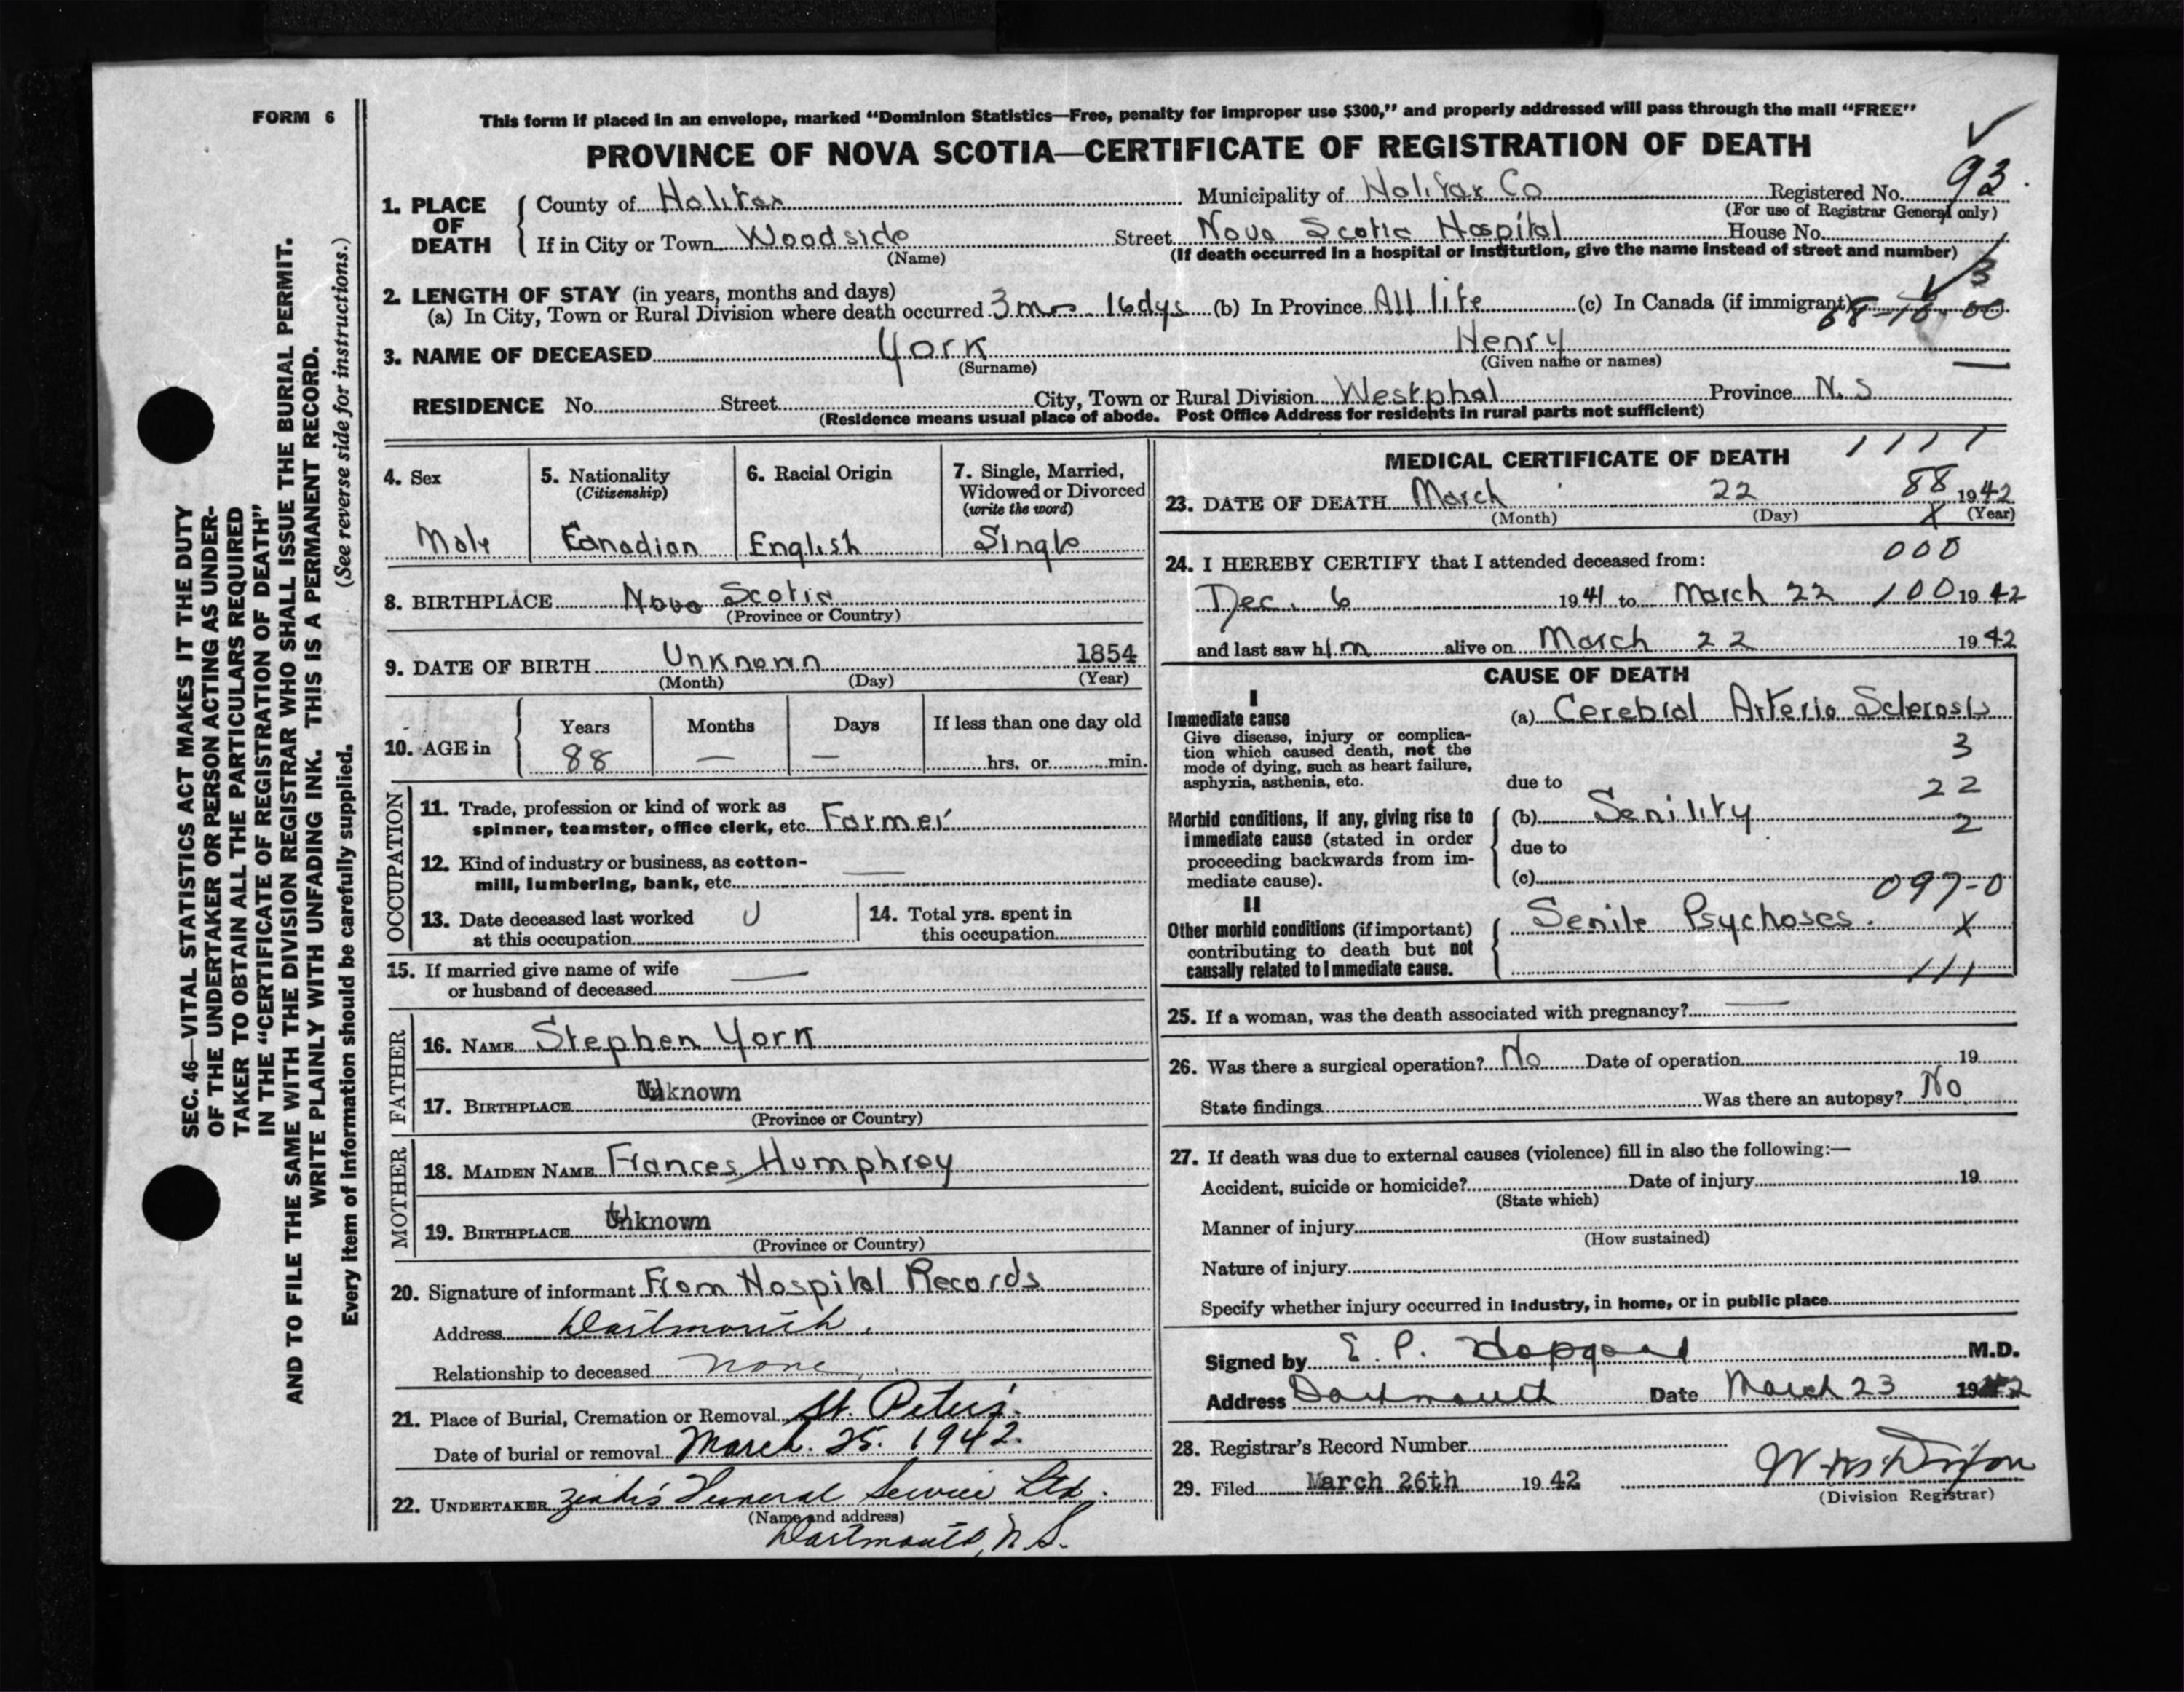 FORM 6
SEC. 46—VITAL STATISTICS ACT MAKES IT THE DUTY
OF THE UNDERTAKER OR PERSON ACTING AS UNDER-
TAKER TO OBTAIN ALL THE PARTICULARS REQUIRED
IN THE "CERTIFICATE OF REGISTRATION OF DEATH"
AND TO FILE THE SAME WITH THE DIVISION REGISTRAR WHO SHALL ISSUE THE BURIAL PERMIT.
WRITE PLAINLY WITH UNFADING INK. THIS IS A PERMANENT RECORD.
Every item of information should be carefully supplied. (See reverse side for instructions.)
This form if placed in an envelope, marked "Dominion Statistics—Free, penalty for improper use $300," and properly addressed will pass through the mail "FREE"
PROVINCE OF NOVA SCOTIA—CERTIFICATE OF REGISTRATION OF DEATH
1. PLACE OF DEATH
County of Halifax Municipality of Halifax Co Registered No. 93
(For use of Registrar General only)
If in City or Town Woodside Street Nova Scotia Hospital House No.
(Name) (If death occurred in a hospital or institution, give the name instead of street and number)
3
2. LENGTH OF STAY (in years, months and days)
(a) In City, Town or Rural Division where death occurred 3 mos 16 dys (b) In Province All life (c) In Canada (if immigrant)
3. NAME OF DECEASED York Henry
(Surname) (Given name or names)
RESIDENCE No. Street City, Town or Rural Division Westphal Province N.S
(Residence means usual place of abode. Post Office Address for residents in rural parts not sufficient)
4. Sex
Male
5. Nationality
(Citizenship)
Canadian
6. Racial Origin
English
7. Single, Married,
Widowed or Divorced
(write the word)
Single
8. BIRTHPLACE Nova Scotia
(Province or Country)
9. DATE OF BIRTH Unknown 1854
(Month) (Day) (Year)
10. AGE in
Years Months Days If less than one day old
88 — — hrs. or min.
OCCUPATION
11. Trade, profession or kind of work as
spinner, teamster, office clerk, etc. Farmer
12. Kind of industry or business, as cotton-
mill, lumbering, bank, etc. —
13. Date deceased last worked U
at this occupation
14. Total yrs. spent in
this occupation
15. If married give name of wife —
or husband of deceased
FATHER
16. NAME Stephen York
17. BIRTHPLACE Unknown
(Province or Country)
MOTHER
18. MAIDEN NAME Frances Humphrey
19. BIRTHPLACE Unknown
(Province or Country)
20. Signature of informant From Hospital Records
Address Dartmouth.
Relationship to deceased none
21. Place of Burial, Cremation or Removal St. Peter's.
Date of burial or removal March. 25. 1942.
22. UNDERTAKER Funeral Service Ltd.
(Name and address)
Dartmouth, N.S.
MEDICAL CERTIFICATE OF DEATH 1111
88
23. DATE OF DEATH March 22 1942
(Month) (Day) X (Year)
000
24. I HEREBY CERTIFY that I attended deceased from:
Dec. 6 1941 to March 22 100 1942
and last saw him alive on March 22 1942
CAUSE OF DEATH
I
Immediate cause
Give disease, injury or complica-
tion which caused death, not the
mode of dying, such as heart failure,
asphyxia, asthenia, etc.
(a) Cerebral Arterio Sclerosis
3
due to
22
Morbid conditions, if any, giving rise to
immediate cause (stated in order
proceeding backwards from im-
mediate cause).
(b) Senility
2
due to
(c)
097-0
II
Other morbid conditions (if important)
contributing to death but not
causally related to immediate cause.
Senile Psychoses.
X
111
25. If a woman, was the death associated with pregnancy? —
26. Was there a surgical operation? No Date of operation 19
State findings Was there an autopsy? No
27. If death was due to external causes (violence) fill in also the following:—
Accident, suicide or homicide? Date of injury 19
(State which)
Manner of injury
(How sustained)
Nature of injury
Specify whether injury occurred in industry, in home, or in public place
Signed by E. P. Hopgood M.D.
Address Dartmouth Date March 23 1942
28. Registrar's Record Number
29. Filed March 26th 1942
(Division Registrar)